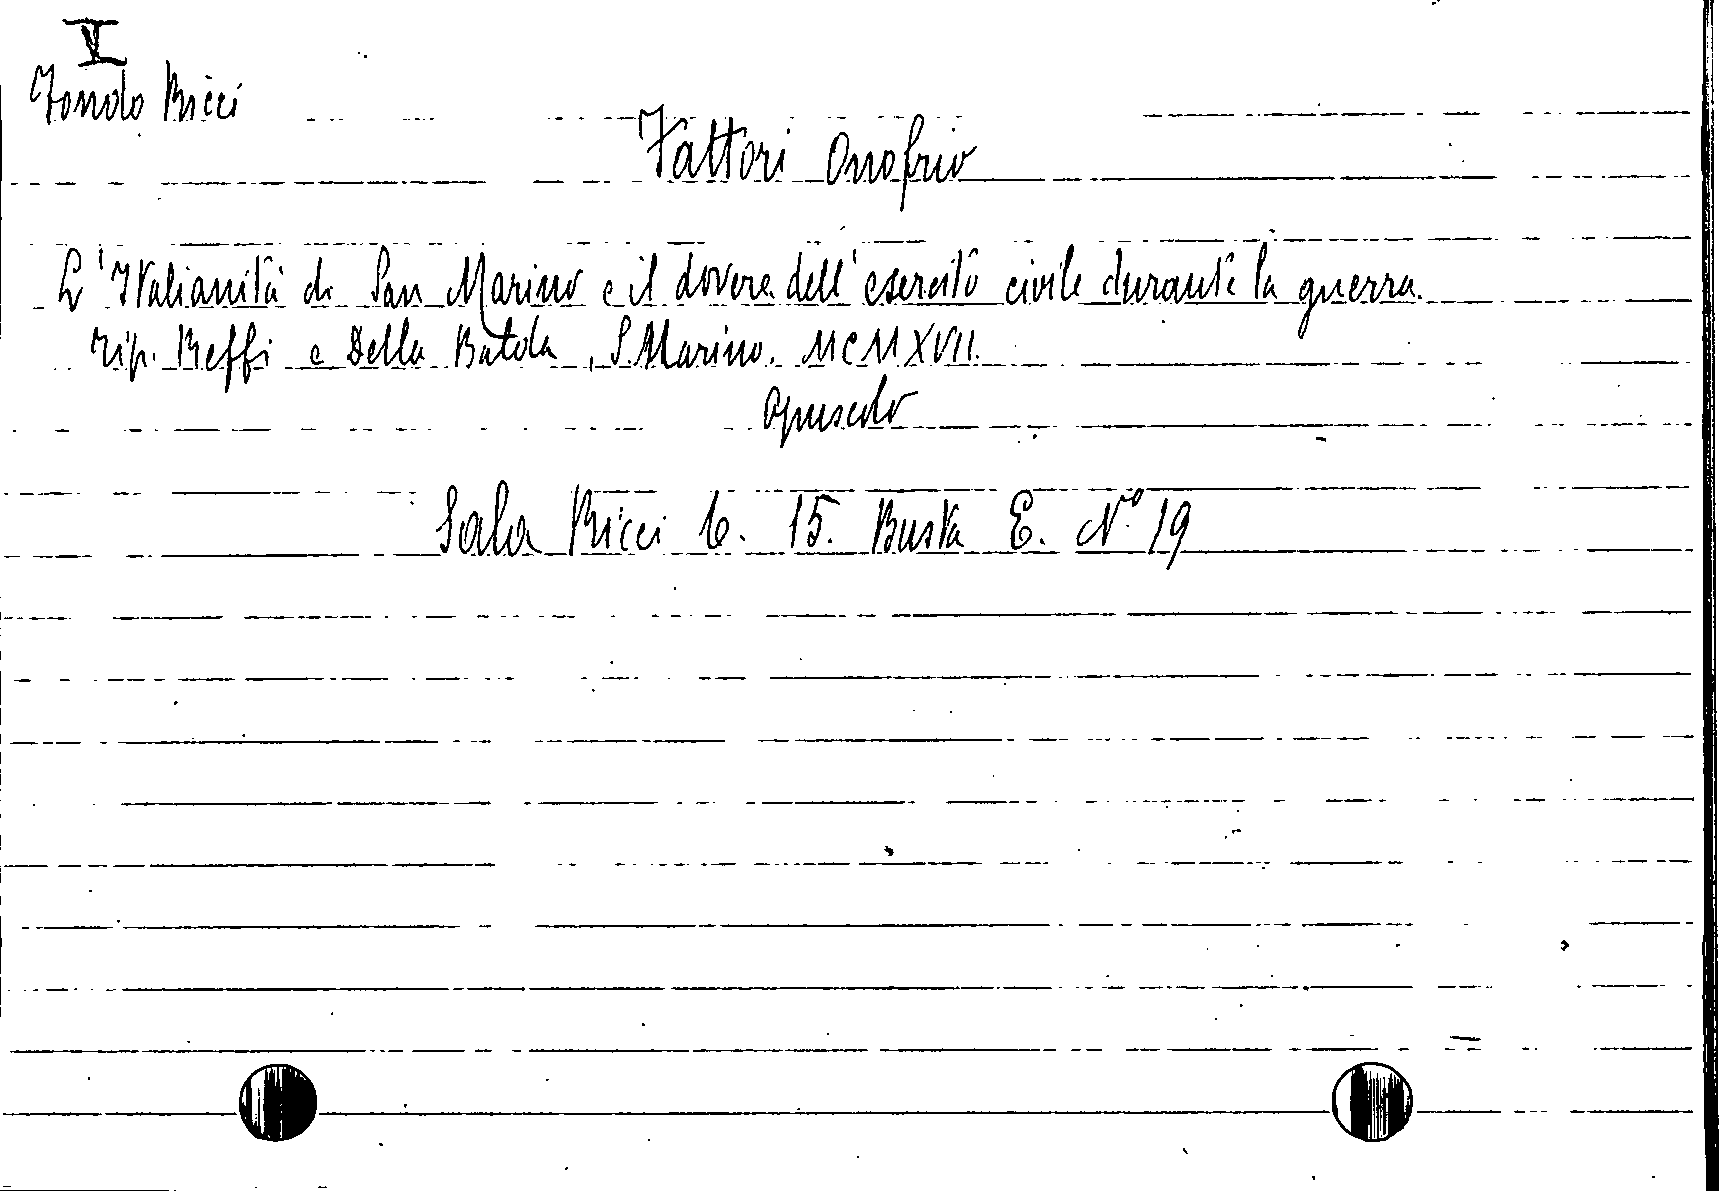 V
Fondo Ricci
Fattori Onofrio
L'Italianità di San Marino e il dovere dell'esercito civile durante la guerra.
Tip. Reffi e Della Balda, S. Marino. MCMXVII.
Opuscolo
Sala Ricci C. 15. Busta E. N.º 19